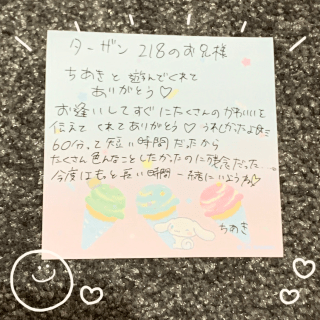 ターザン 218のお兄様
ちあきと遊んでくれて
ありがとう♡
お逢いしてすぐにたくさんのかわいいを
伝えてくれてありがとう♡うれしかったよ
60分って短い時間だから
たくさん色んなことしたかったのに残念だった…
今度はもっと長い時間一緒にいようね
ちあき